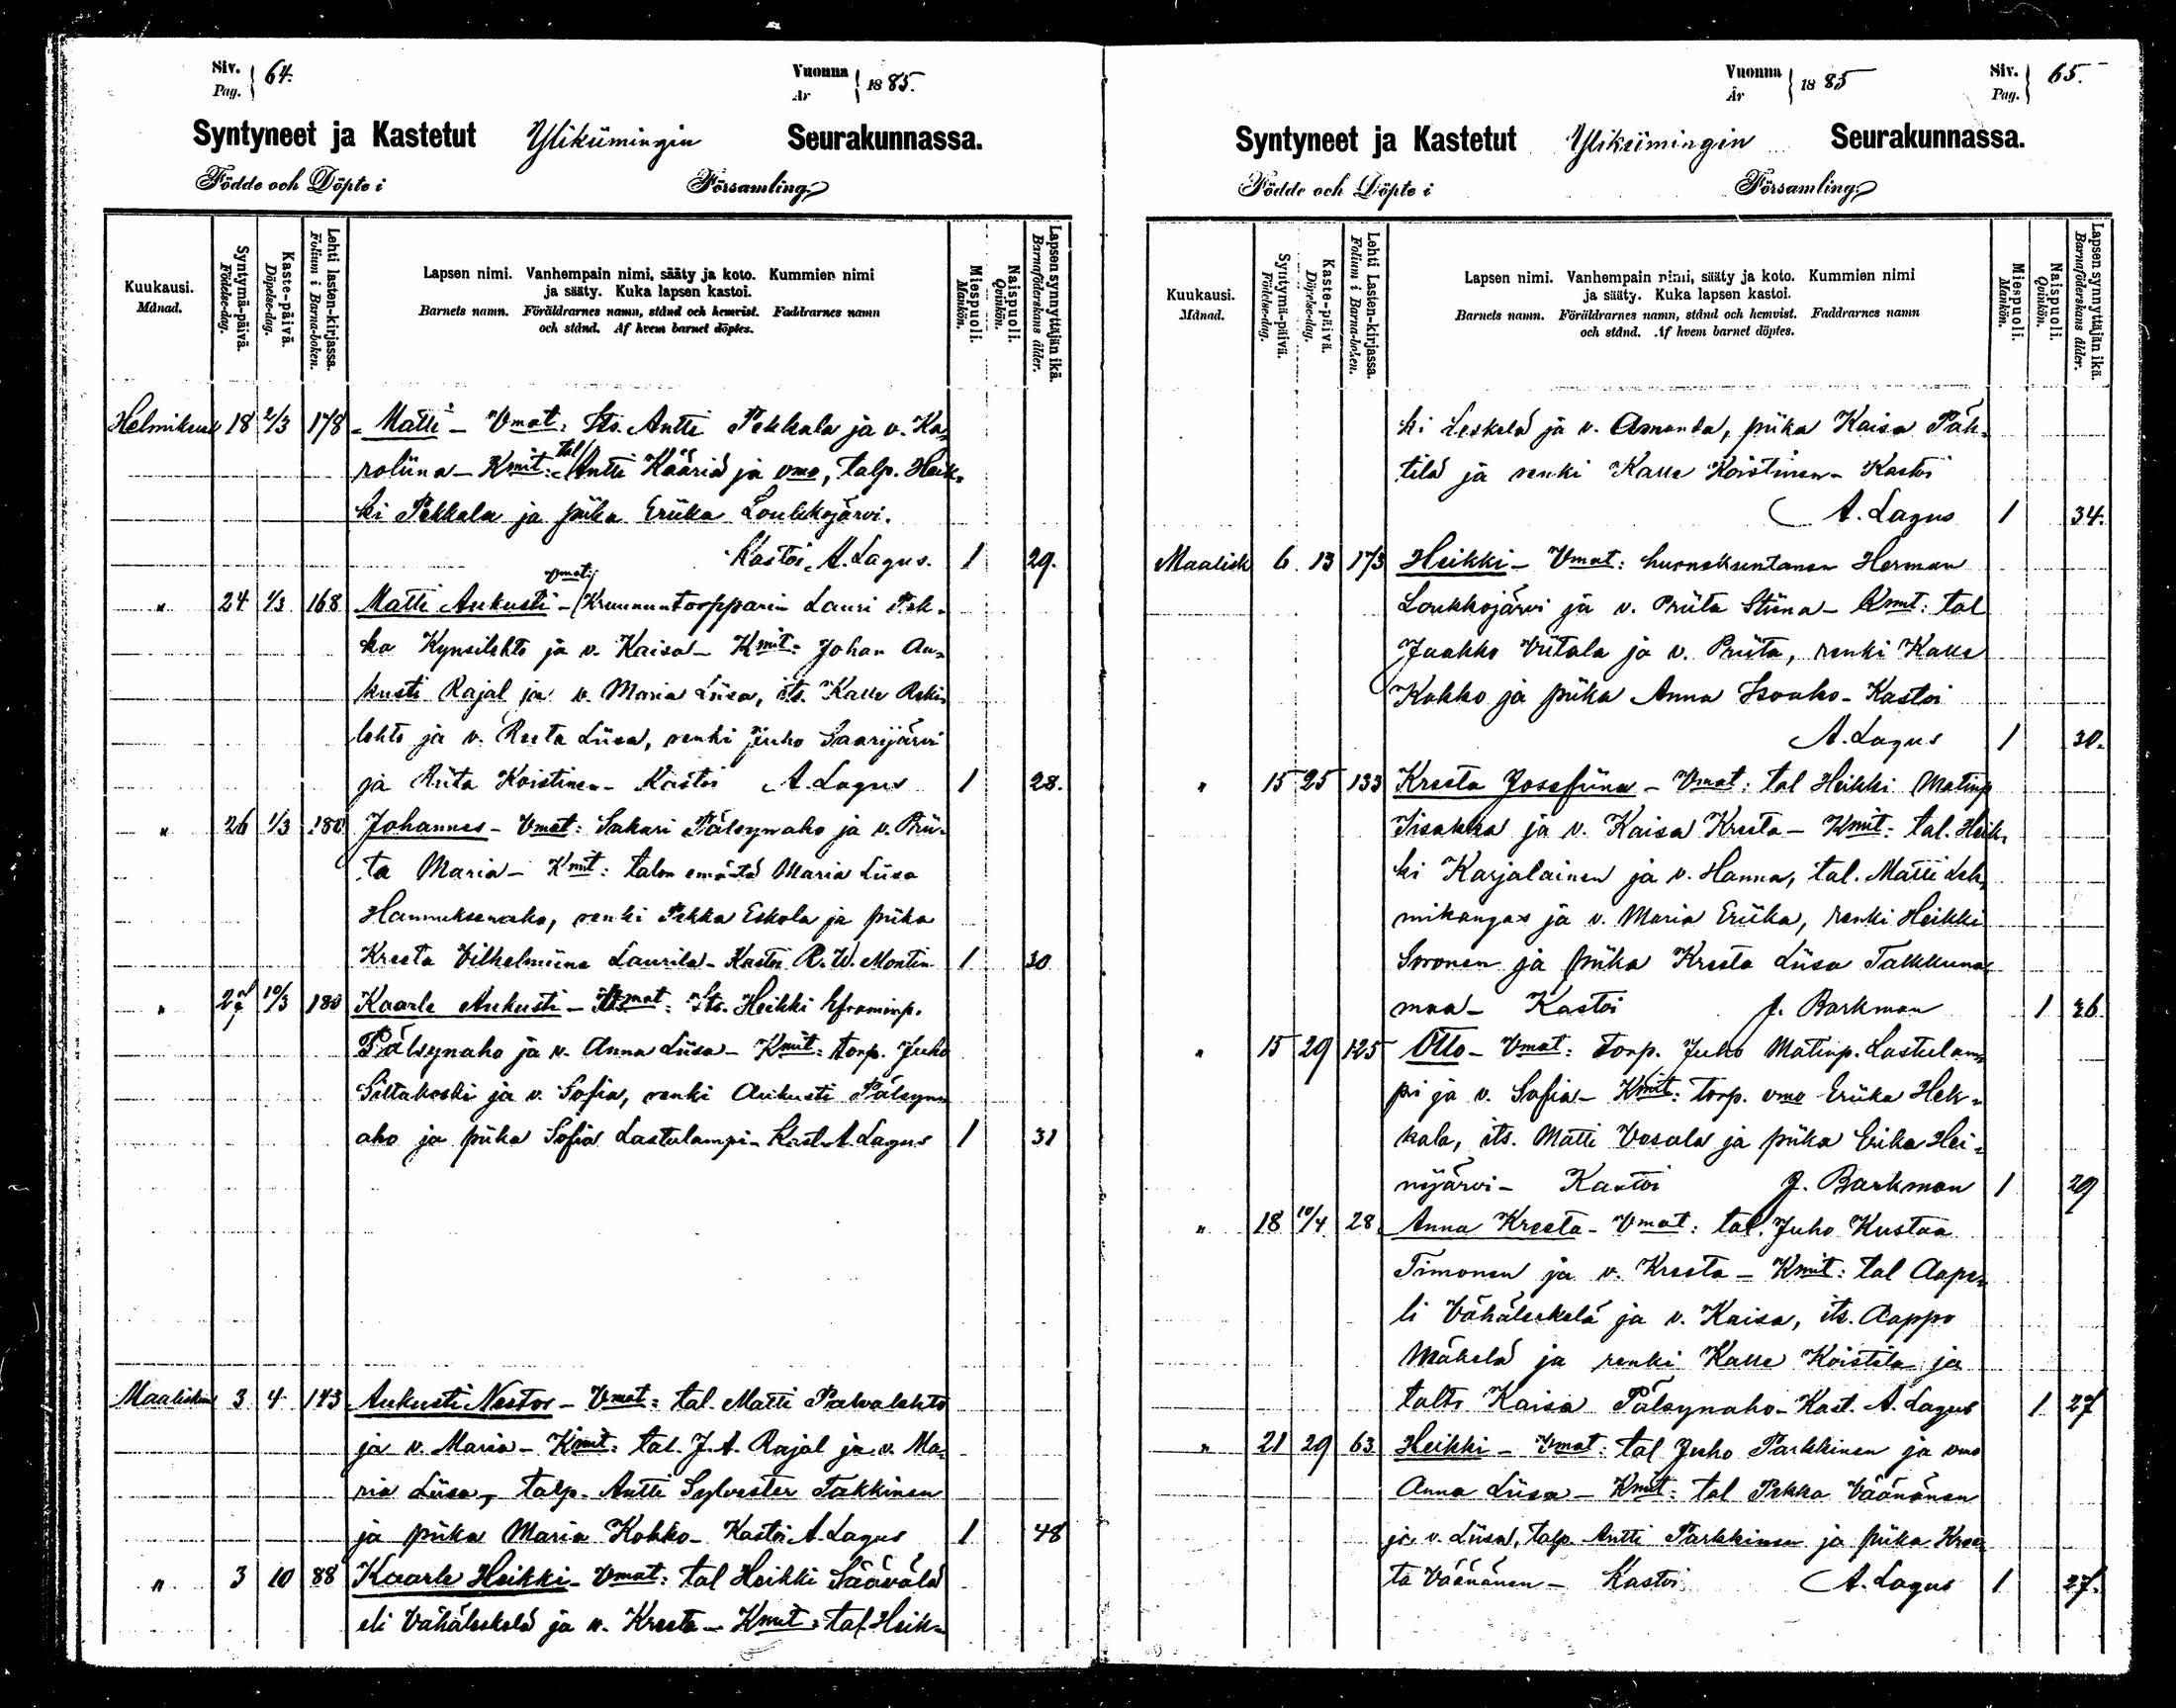 Siv. Pag. 64.
Vuonna År 1885.
Syntyneet ja Kastetut Ylikiimingin Seurakunnassa.
Födde och Döpte i Församling.
Kuukausi. Månad.
Syntymä-päivä. Födelse-dag.
Kaste-päivä. Döpelse-dag.
Lehti lasten-kirjassa. Folium i Barna-boken.
Lapsen nimi. Vanhempain nimi, sääty ja koto. Kummien nimi
ja sääty. Kuka lapsen kastoi.
Barnets namn. Föräldrarnes namn, stånd och hemvist. Faddrarnes namn
och stånd. Af hvem barnet döptes.
Miespuoli. Mankön.
Naispuoli. Qvinkön.
Lapsen synnyttäjän ikä. Barnaföderskans ålder.
Helmikuu 18 2/3 178 Matti - Vmat: Its. Antti Pekkala ja v. Ka-
roliina - Kmit: tal Antti Kääriä ja vmo, talp. Heik-
ki Pekkala ja piika Eriika Loukkojärvi.
Kastoi A. Lagus. 1 29.
" 24 1/3 168 Matti Aukusti - Vmat: Kruununtorpparin Lauri Pek-
ka Kynsilehto ja v. Kaisa - Kmit: Johan Au-
kusti Rajal ja v. Maria Liisa, its. Kalle
lehto ja v. Reeta Liisa, renki Juho Saarijärvi
ja Riita Koistinen - Kastoi A. Lagus 1 28.
" 26 1/3 180 Johannes - Vmat: Sakari Pälsynaho ja v. Prii-
ta Maria - Kmit: talon emäntä Maria Liisa
Hannuksenaho, renki Pekka Eskola ja piika
Kreeta Vilhelmiina Laurila - Kastoi R. W. Montin 1 30
" 27 10/3 180 Kaarle Aukusti - Vmat: Its. Heikki Eframinp.
Pälsynaho ja v. Anna Liisa - Kmit: torp. Juho
Siltakoski ja v. Sofia, renki Aukusti Pälsyn-
aho ja piika Sofia Lastulampi - Kast. A. Lagus 1 31
Maaliskuu 3 4 143 Aukusti Nestor - Vmat: tal. Matti Palvalehto
ja v. Maria - Kmit: tal. J. A. Rajal ja v. Ma-
ria Liisa, talp. Antti Sylvester Takkinen
ja piika Maria Kokko - Kastoi A. Lagus 1 48
" 3 10 88 Kaarle Heikki - Vmat: tal Heikki Säävälä
eli Vähäleskelä ja v. Kreeta - Kmit: tal. Heik-
Vuonna År 1885
Siv. Pag. 65.
Syntyneet ja Kastetut Ylikiimingin Seurakunnassa.
Födde och Döpte i Församling.
Kuukausi. Månad.
Syntymä-päivä. Födelse-dag.
Kaste-päivä. Döpelse-dag.
Lehti Lasten-kirjassa. Folium i Barna-boken.
Lapsen nimi. Vanhempain nimi, sääty ja koto. Kummien nimi
ja sääty. Kuka lapsen kastoi.
Barnets namn. Föräldrarnes namn, stånd och hemvist. Faddrarnes namn
och stånd. Af hvem barnet döptes.
Miespuoli. Mankön.
Naispuoli. Qvinkön.
Lapsen synnyttäjän ikä. Barnaföderskans ålder.
ki Leskelä ja v. Amanda, piika Kaisa Päk-
tilä ja renki Kalle Koistinen - Kastoi
A. Lagus 1 34.
Maalisk 6 13 173 Heikki - Vmat: huonekuntanen Herman
Loukkojärvi ja v. Priita Stiina - Kmit: tal
Jaakko Viitala ja v. Priita, renki Kalle
Kokko ja piika Anna Isoaho - Kastoi
A. Lagus 1 30.
" 15 25 133 Kreeta Josefiina - Vmat: tal Heikki Matinp
Iisakka ja v. Kaisa Kreeta - Kmit: tal. Heik-
ki Karjalainen ja v. Hanna, tal. Matti Leh-
mikangas ja v. Maria Eriika, renki Heikki
Soronen ja piika Kreeta Liisa Talkkuna-
maa - Kastoi J. Barkman 1 36
" 15 29 125 Otto - Vmat: Torp. Juho Matinp. Lastulam-
pi ja v. Sofia - Kmit: torp. vmo Eriika Hek-
kala, its. Matti Vasala ja piika Erika Hei-
nijärvi - Kastoi J. Barkman 1 29
" 18 10/4 28. Anna Kreeta - Vmat: tal. Juho Kustaa
Timonen ja v. Kreeta - Kmit: tal Aape-
li Vähäleskelä ja v. Kaisa, its. Aappo
Mäkelä ja renki Kalle Koistila ja
taltr Kaisa Pälsynaho - Kast. A. Lagus 1 27
" 21 29 63 Heikki - Vmat: tal Juho Parkkinen ja vmo
Anna Liisa - Kmit: tal Pekka Väänänen
ja v. Liisa, talp. Antti Parkkinen ja piika Kree-
ta Väänänen - Kastoi A. Lagus 1 27.